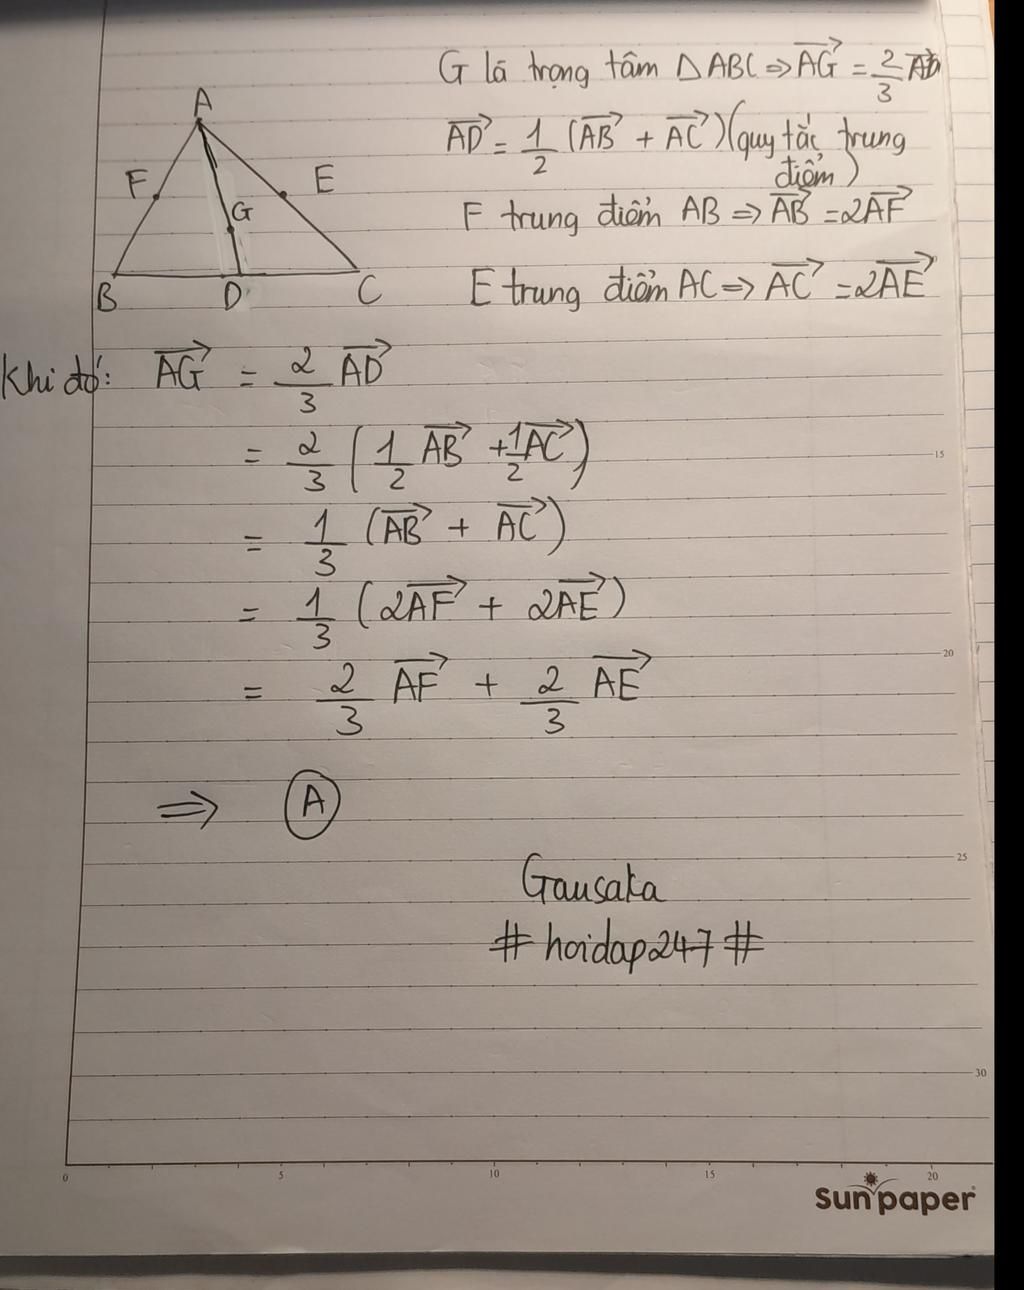 G là trọng tâm ΔABC ⇒ \overrightarrow{AG} = \frac{2}{3} \overrightarrow{AD}
\overrightarrow{AD} = \frac{1}{2} (\overrightarrow{AB} + \overrightarrow{AC}) (quy tắc trung
điểm)
F trung điểm AB ⇒ \overrightarrow{AB} = 2\overrightarrow{AF}
E trung điểm AC ⇒ \overrightarrow{AC} = 2\overrightarrow{AE}
A
F
E
G
B
D
C
Khi đó: \overrightarrow{AG} = \frac{2}{3} \overrightarrow{AD}
= \frac{2}{3} (\frac{1}{2} \overrightarrow{AB} + \frac{1}{2} \overrightarrow{AC})
= \frac{1}{3} (\overrightarrow{AB} + \overrightarrow{AC})
= \frac{1}{3} (2\overrightarrow{AF} + 2\overrightarrow{AE})
= \frac{2}{3} \overrightarrow{AF} + \frac{2}{3} \overrightarrow{AE}
⇒ A
Gausaka
# hoidap247 #
15
20
25
30
0 5 10 15 20
sunpaper